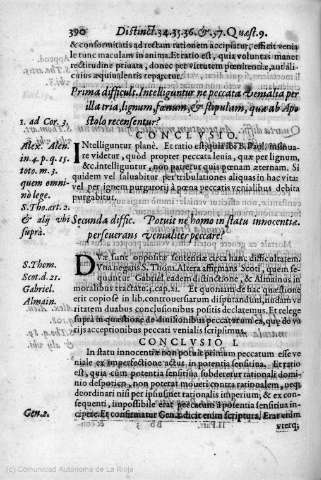 390 Distinct.34.35.36.& 37.Quæst.9.
& conformitatis ad rectam rationem accipitur, efficit venia
le tunc maculam in anima. Et ratio est, quia voluntas manet
rectitudine privata, donec per virtutem pœnitentiæ, aut ali
cuius æquivalentis repagetur.
Prima difficul. Intelliguntur ne peccata venialia per
illa tria, lignum, fœnum, & stipulam, quæ ab Apo
stolo recensentur?
CONCLVSIO.
1. ad Cor. 3.
Alex. Alen.
in 4. p. q. 15.
tom. 3.
quem omni-
nò lege.
S. Tho. art. 2.
& alij vbi
suprà.
INtelliguntur planè. Et ratio est, quia ibi B. Paul.
re videtur, quòd propter peccata lenia, quæ per lignum,
&c. intelliguntur, non patietur quis pœnam æternam. Si
quidem vel salvabitur per tribulationes aliquas in hac vita
vel per ignem purgatorij à quo peccata venialia debita
purgabitur.
Secunda diffic. Potuit ne homo in statu innocentiæ
perseverans venialiter peccare?
S. Thom.
Scot. d. 21.
Gabriel.
Almain.
DVæ sunt oppositæ sententiæ circa hanc difficultatem.
Vna negans S. Thom. Altera affirmans Scoti, quem se-
quuntur Gabriel eadem distinctione, & Almainus in
moralibus tractate. 4. cap. 21. Et quoniam de hac quæstione
erit copiosè in lib. controversiarum disputandum,
ritatem duabus conclusionibus positis declaremus. Et relege
suprà in quæstione, de divisionibus peccatorum ea, quæ de va
rijs acceptionibus peccati venialis scripsimus.
CONCLVSIO I.
In statu innocentiæ non potuit primum peccatum esse ve
niale ex imperfectione actus in potentia sensitiva. Et ratio
est, quia cum potentia sensitiva subderetur rationali domi
nio despotico, non poterat moveri contra rationem,
ordinari nisi per ipsius rationalis imperium, & ex conse-
quenti, impossibile erat peccatum à potentia sensitiva in-
Gen. 2.
cipere. Et confirmatur Gen. 2. dicit enim scriptura, Erat enim
vterq;
(c) Comunidad Autónoma de La Rioja